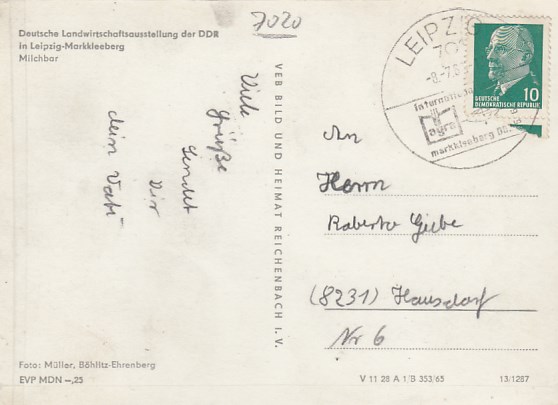 7020
Deutsche Landwirtschaftsausstellung der DDR
in Leipzig-Markkleeberg
Milchbar
Viele
Grüße
sendet
Dir
dein Vati
VEB BILD UND HEIMAT REICHENBACH I. V.
LEIPZIG
-8.-7.6
internationa
agra
markkleeberg
10
DEUTSCHE
DEMOKRATISCHE REPUBLIK
An
Herrn
Roberto
(8231) Hausdorf
Nr 6
Foto: Müller, Böhlitz-Ehrenberg
EVP MDN –,25
V 11 28 A 1/B 353/65
13/1287